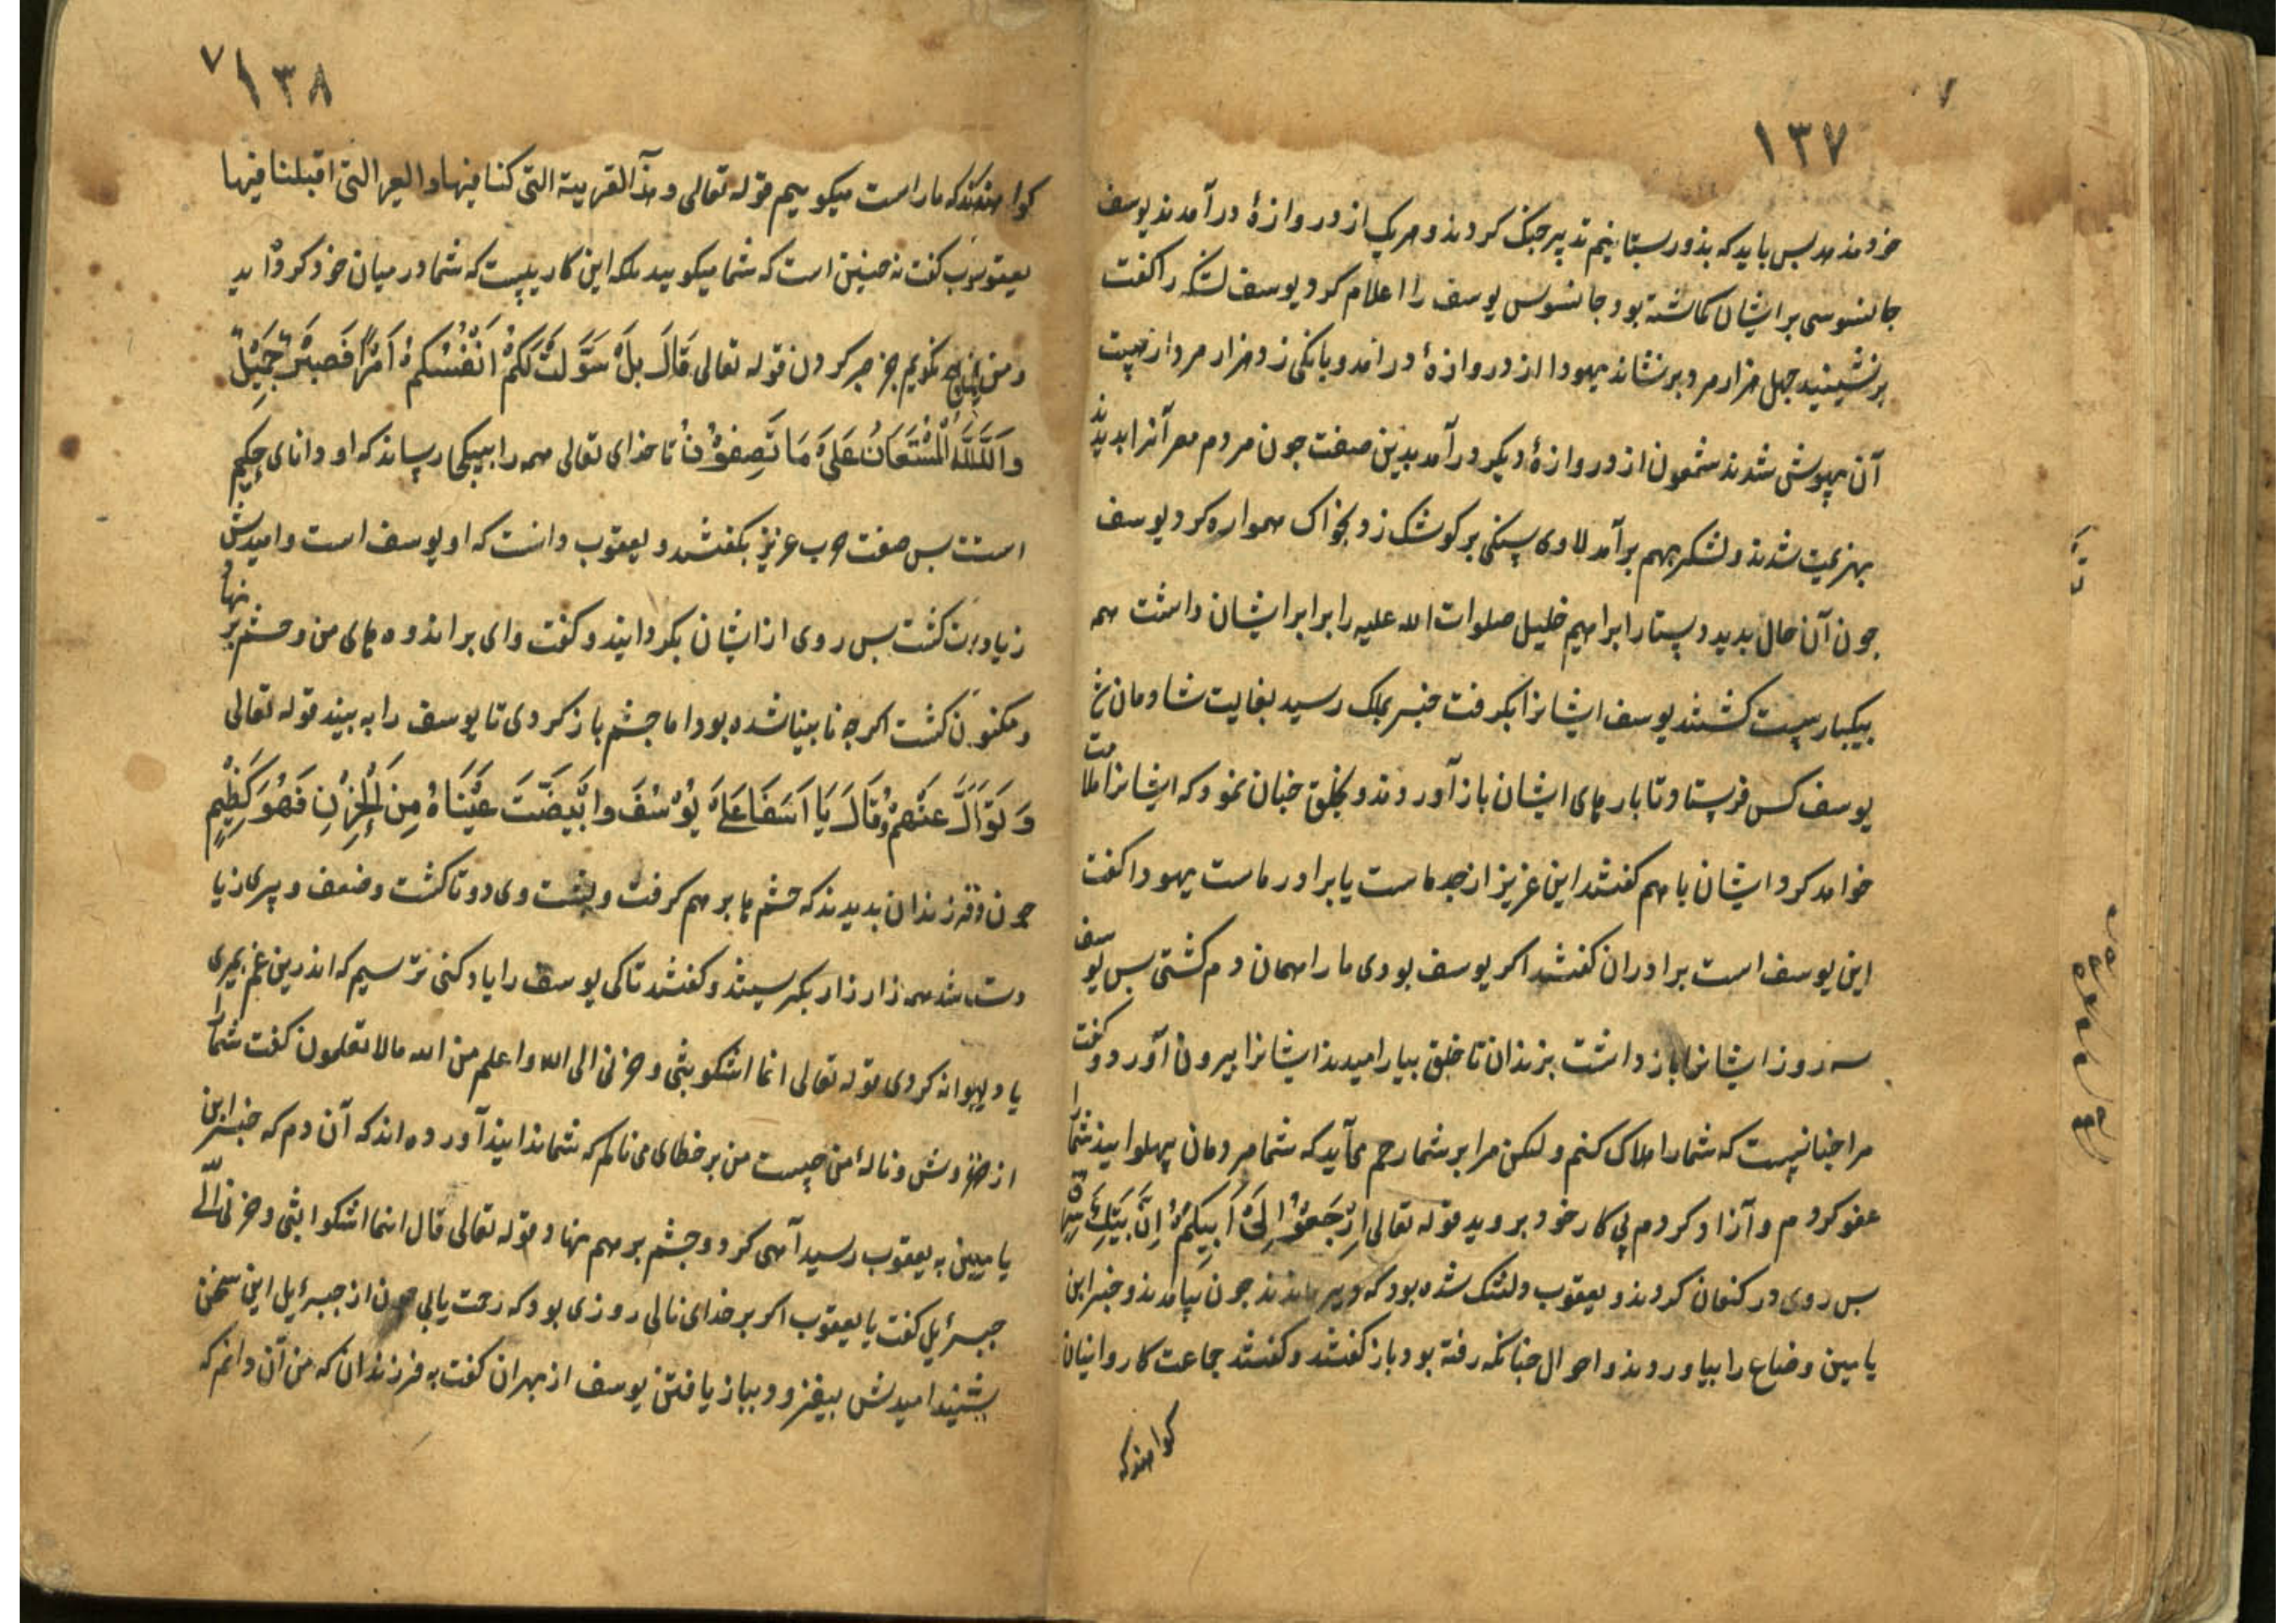 ۱۳۷
خردمند مدبس باید که بذور بستانیم تدبیر جنک کردند و هریک از دروازهٔ درآمدند یوسف
جاسوسی بر ایشان کماشته بود جاسوس یوسف را اعلام کرد یوسف لشکر را کفت
برنشینید جهل هزار مرد برنشاند یهودا از دروازهٔ درآمد و بانکی زد هزار مرد از هیبت
آن بیهوش شدند شمعون از دروازهٔ دیکر درآمد بدین صفت جون مردم مصر آنرا بدیدند
بهزیمت شدند و لشکر بهم برآمد لاوی سنکی بر کوشک زد بخاک هموار کرد یوسف
جون آن حال بدید دستار ابراهیم خلیل صلوات الله علیه را برابر ایشان داشت همه
بیکبار سست کشتند یوسف ایشانرا بکرفت خبر بملک رسید بغایت شادمان شد
یوسف کس فرستاد تا بارهای ایشان باز آوردند و بخلق جنان نمود که ایشانرا ملامت
خواهد کرد ایشان با هم کفتند این عزیز از جد ماست یا برادر ماست یهودا کفت
این یوسف است برادران کفتند اکر یوسف بودی ما را همان دم کشتی بس یوسف
سه روز ایشانرا باز داشت بزندان تا خلق بیارامیدند ایشانرا بیرون آورد و کفت
مرا جنان نیست که شما را هلاک کنم ولکن مرا بر شما رحم می‌آید که شما مردمان بهلوانید شما را
عفو کردم و آزاد کردم پی کار خود بروید قوله تعالی اِرْجَعُوْا اِلیَ اَبِیکُمْ اِنَّ ابْنَکَ سَرَقَ
بس روی در کنعان کردند و یعقوب دلتنک شده بود که دیر ماندند جون بیامدند و خبر ابن
یامین و ضاع را بیاوردند و احوال جنانکه رفته بود باز کفتند و کفتند جماعت کاروانیان
کواهند که
۱۳۸
کواهند که ما راست میکوییم قوله تعالی و هذا القریة التی کنا فیها و العیر التی اقبلنا فیها
یعقوب کفت نه جنین است که شما میکویید بلکه این کاریست که شما در میان خود کرده‌اید
و من هیج نکویم جز صبر کردن قوله تعالی قَالَ بَلْ سَوَّلَتْ لَکُمْ اَنْفُسُکُمْ اَمْرًا فَصَبْرٌ جَمِیْلٌ
وَاللّٰهُ الْمُسْتَعَانُ عَلیَ مَا تَصِفُوْنَ تا خدای تعالی همه را بیکجا رساند که او دانای حکیم
است بس صفت عزیز بکفتند و یعقوب دانست که او یوسف است و امیدش
زیادت کشت بس روی از ایشان بکردانید و کفت وای بر اندوه‌های من و جشم بر نهاد
و مکنون کشت اکرجه نابینا شده بود اما جشم باز کردی تا یوسف را به بیند قوله تعالی
وَ تَوَلَّ عَنْهُمْ وَ قَالَ یَا اَسَفَا عَلیَ یُوْسُفَ وَابْیَضَّتْ عَیْنَاهُ مِنَ الْحُزْنِ فَهُوَ کَظِیْمٌ
جون فرزندان بدیدند که جشم‌ها بر هم کرفت و بشت وی دوتا کشت و ضعف و پیری زیا
دت شد همه زار زار بکریستند و کفتند تا کی یوسف را یاد کنی ترسیم که اندرین غم بمیری
یا دیوانه کردی قوله تعالی انما اشکو بثی و حزنی الی الله و اعلم من الله ما لا تعلمون کفت شما را
از خروش و نالهٔ من جیست من بر خطای می‌نالم که شما ندانید آورده‌اند که آن دم که خبر ابن
یامین به یعقوب رسید آهی کرد و جشم بر هم نهاد قوله تعالی قال انما اشکوا بثی و حزنی الی
جبرئیل کفت یا یعقوب اکر بر خدای نالی روزی بود که زحت یابی جون از جبرئیل این سخن
بشنید امیدش بیفزود بباز یافتن یوسف از بهر آن کفت به فرزندان که من آن دانم که